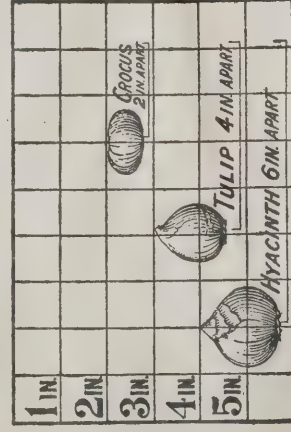 1 IN.
2 IN.
3 IN.
4 IN.
5 IN.
CROCUS
2 IN. APART
TULIP 4 IN. APART
HYACINTH 6 IN. APART